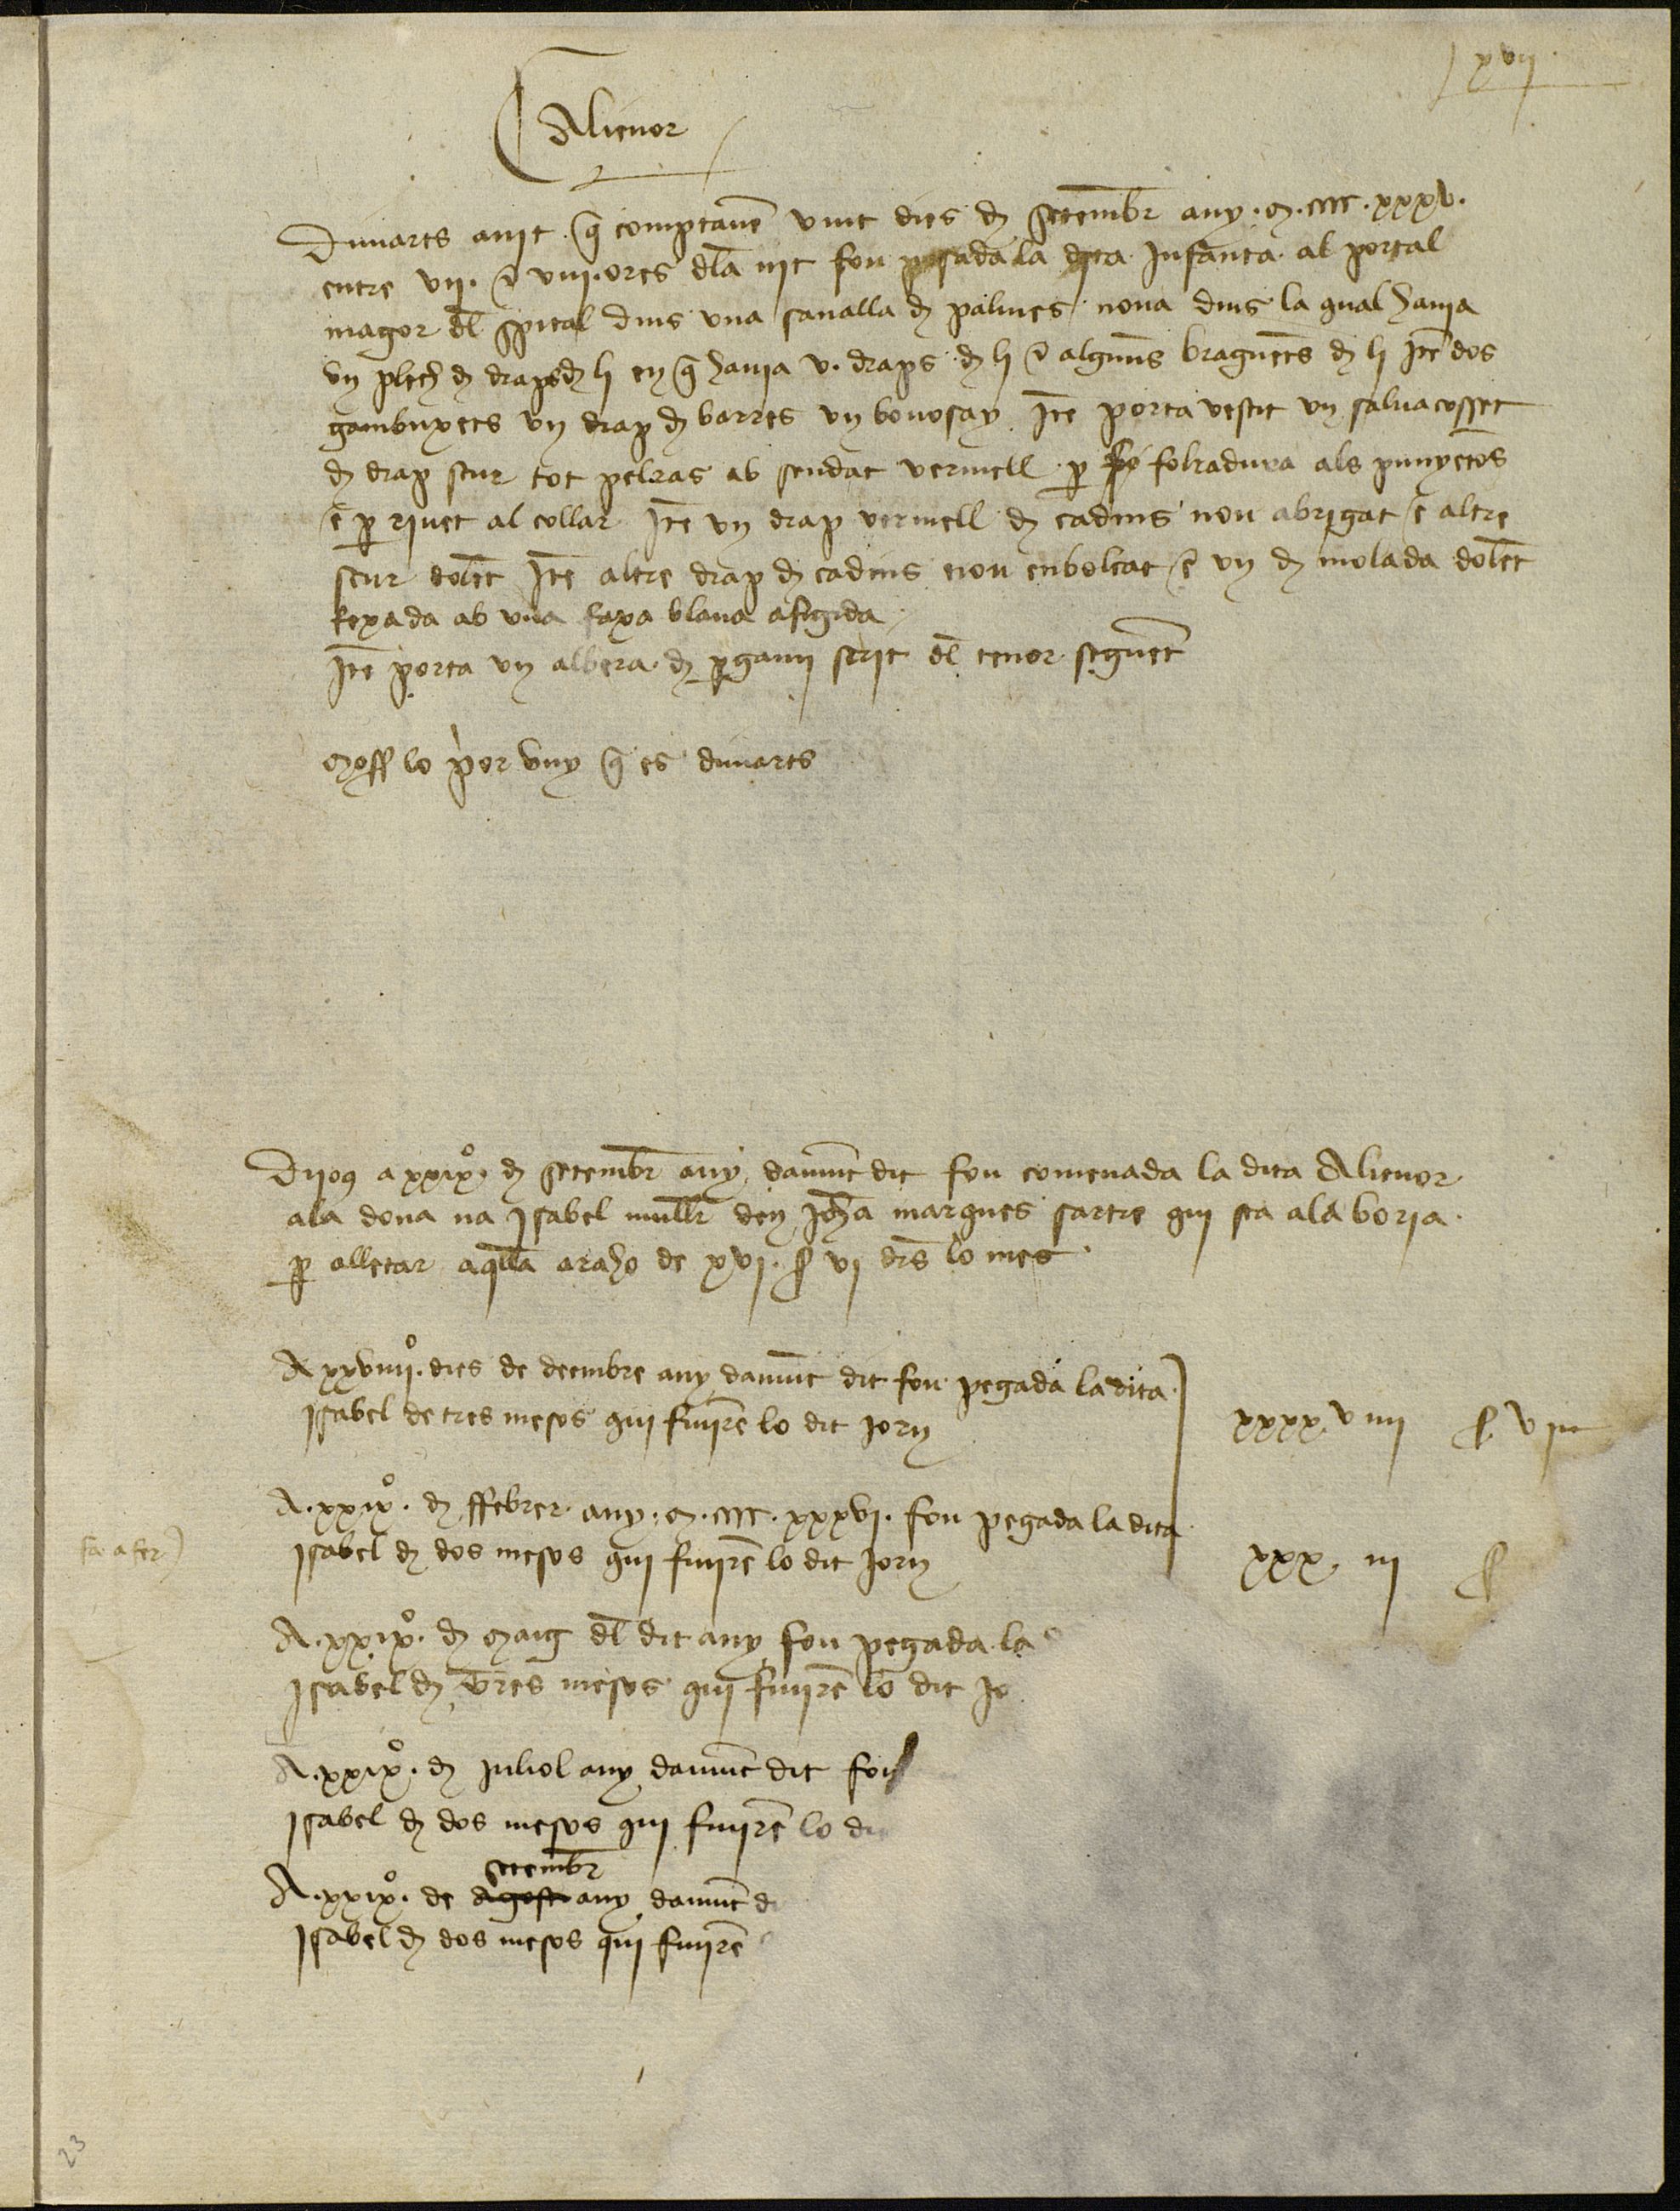 xvii
Alienor
Dimarts a nit q̄ comptauē vint dies de setembr̄ any .m.cccc.xxxv.
entre vij. e viij. ores dla nit fou posada la dita infanta al portal
magor dl̄ spital dins vna sanalla de palmes noua dins la qual hauia
vn plech de draps de li en q̄ hauia v. draps de li e alguns braguets de li Itē dos
gambuxets vn drap de barres vn bouosay Itē porta vestit vn saluacosset
de drap scur tot pelras ab sendat vermell p folradura als punyets
e p riuet al collar Itē vn drap vermell de cadins nou abrigat e altre
scur dolēt Itē altre drap de cadins nou enbolcat e vn de molada dolēt
fexada ab vna faxa blaua afigida
Itē porta vn albera de pgami scrit dl̄ tenor seguēt
lo q̄ es dimarts
Dijos a xxixº. de setembr̄ any damūt dit fou comenada la dita Alienor
ala dona na Isabel mullr̄ den Johā marques sartre qui sta ala boria
p alletar aqlla a raho de xvi. s vi drs̄ lo mes
A xxviiijº. dies de deembre any damūt dit fou pagada la dita
Isabel de tres mesos qui finirē lo dit jorn
xxxxviiij s vi
A .xxixº. de ffebrer any .m.cccc.xxxvi. fou pagada la dita
Isabel de dos mesos qui finirē lo dit jorn
xxx.iii s
fa a fer
A .xxixº. de maig dl̄ dit any fou pagada la
Isabel de tres mesos qui finirē lo dit jo
A .xxixº. de juliol any damūt dit fou
Isabel de dos mesos qui finirē lo di
setembr̄
A .xxixº. de agost any damūt d
Isabel de dos mesos qui finirē
23